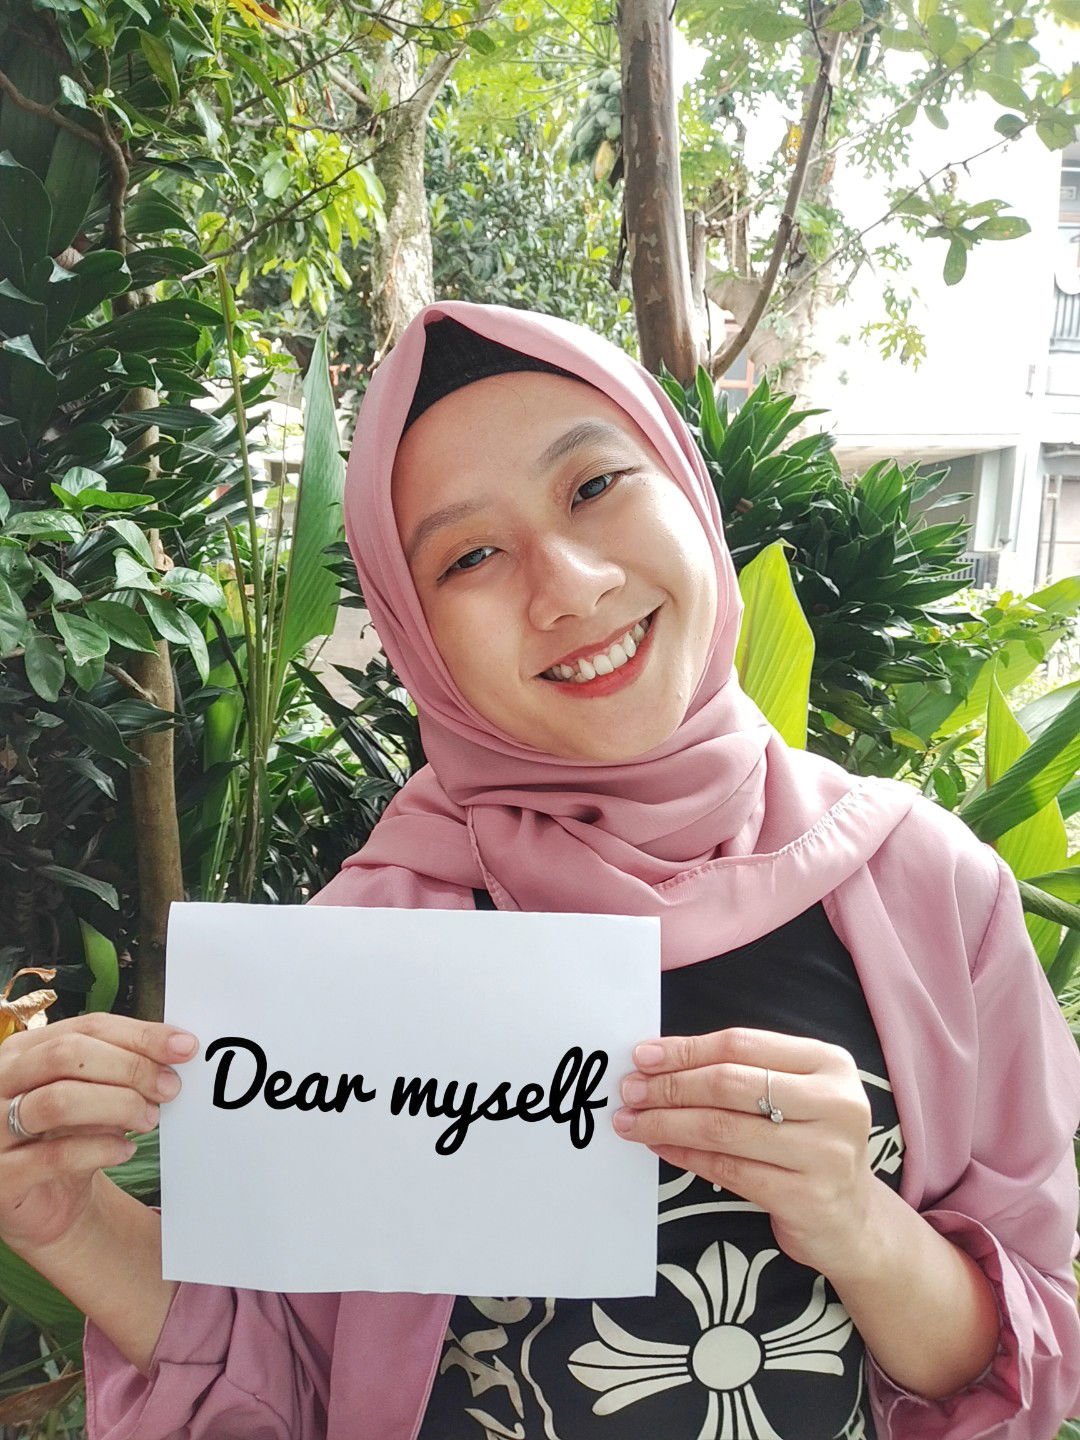 Dear myself